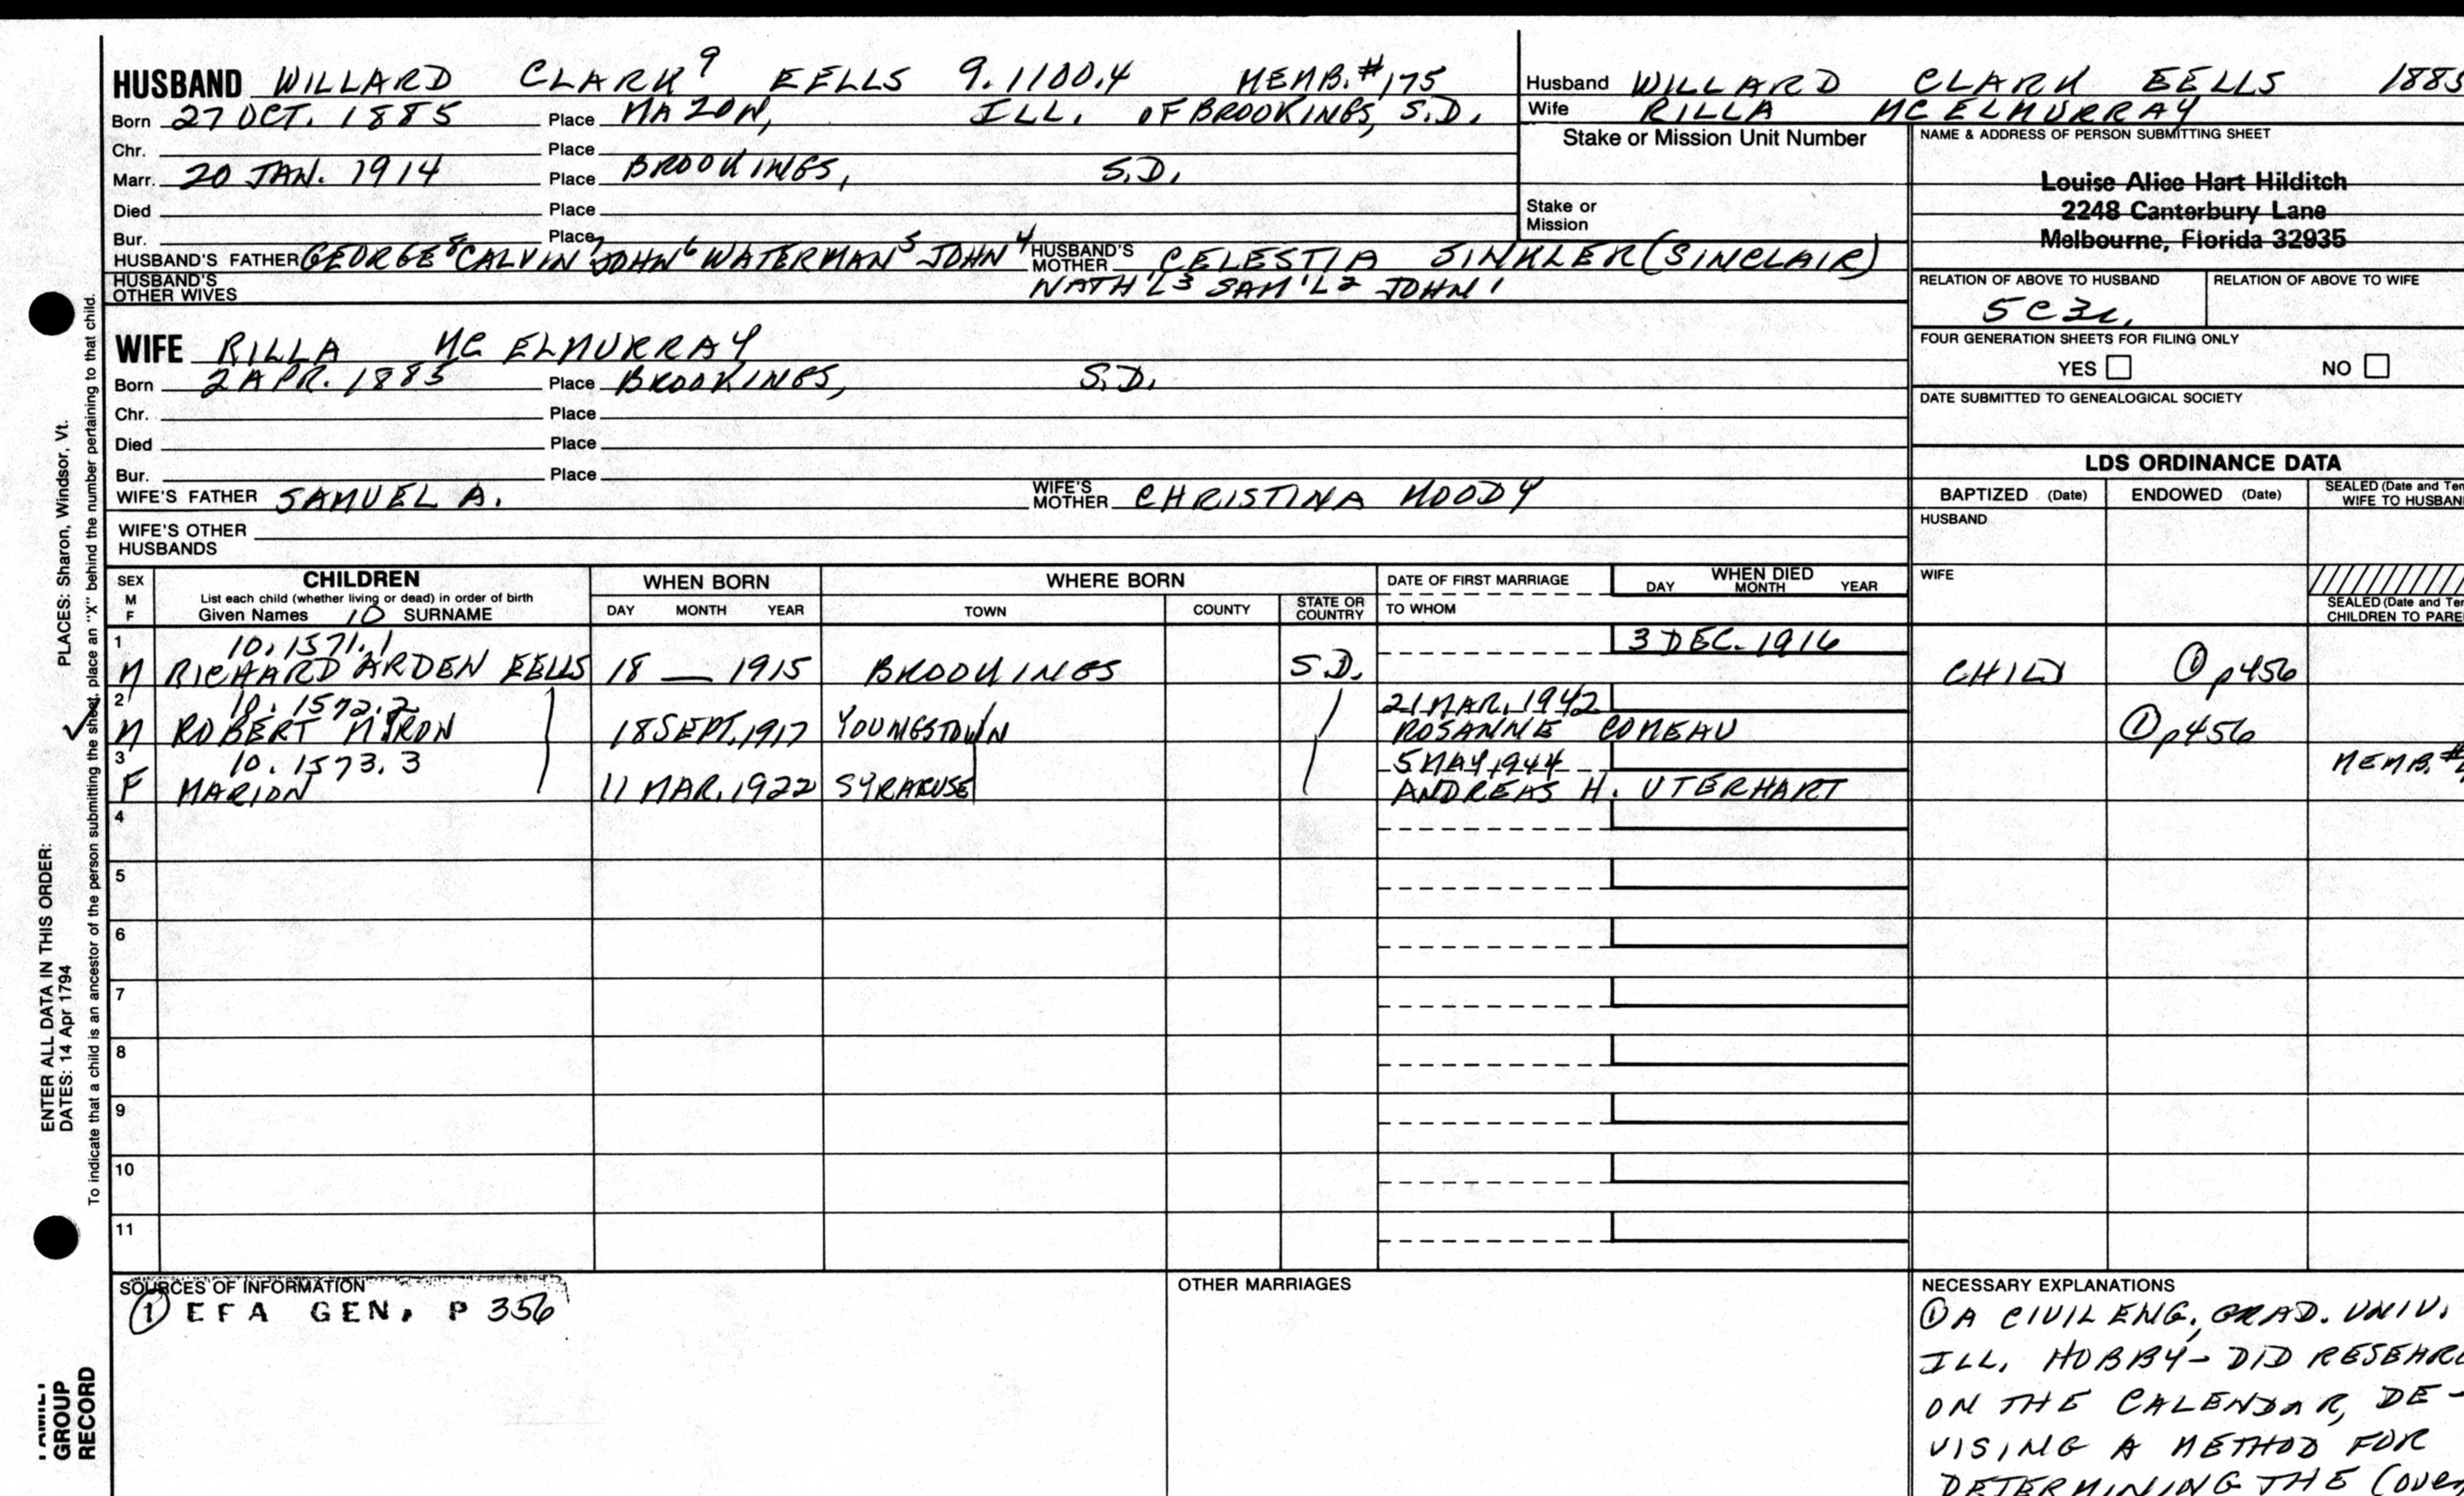 HUSBAND WILLARD CLARK⁹ EELLS 9.1100.4 MEMB.#175
Born 27 OCT. 1885 Place MAZON, ILL. OF BROOKINGS, S.D.
Chr. Place
Marr. 20 JAN. 1914 Place BROOKINGS, S.D.
Died Place
Bur. Place
HUSBAND'S FATHER GEORGE⁸ CALVIN⁷ JOHN⁶ WATERMAN⁵ JOHN⁴ HUSBAND'S MOTHER CELESTIA SINKLER (SINCLAIR)
HUSBAND'S OTHER WIVES NATH'L³ SAM'L² JOHN¹
WIFE RILLA MC ELMURRAY
Born 2 APR. 1885 Place BROOKINGS, S.D.
Chr. Place
Died Place
Bur. Place
WIFE'S FATHER SAMUEL A. WIFE'S MOTHER CHRISTINA MOODY
WIFE'S OTHER HUSBANDS
Husband WILLARD CLARK EELLS 1885
Wife RILLA MC ELMURRAY
Stake or Mission Unit Number
Stake or
Mission
NAME & ADDRESS OF PERSON SUBMITTING SHEET
Louise Alice Hart Hilditch
2248 Canterbury Lane
Melbourne, Florida 32935
RELATION OF ABOVE TO HUSBAND RELATION OF ABOVE TO WIFE
5C3r,
FOUR GENERATION SHEETS FOR FILING ONLY
YES NO
DATE SUBMITTED TO GENEALOGICAL SOCIETY
LDS ORDINANCE DATA
BAPTIZED (Date) ENDOWED (Date) SEALED (Date and Tem
WIFE TO HUSBAN
HUSBAND
WIFE
SEALED (Date and Tem
CHILDREN TO PARE
SEX M F CHILDREN WHEN BORN WHERE BORN DATE OF FIRST MARRIAGE WHEN DIED
List each child (whether living or dead) in order of birth
Given Names 10 SURNAME DAY MONTH YEAR TOWN COUNTY STATE OR COUNTRY TO WHOM DAY MONTH YEAR
1 10.1571.1 3 DEC. 1916
M RICHARD ARDEN EELLS 18 — 1915 BROOKINGS S.D. CHILD ① p456
2 10.1572.2 21 MAR. 1942
M ROBERT MYRON 18 SEPT. 1917 YOUNGSTOWN ROSANNE COMEAU ① p456
3 10.1573.3 5 MAY 1944 MEMB.#
F MARION 11 MAR. 1922 SYRAKUSE ANDREAS H. UTERHART
4
5
6
7
8
9
10
11
SOURCES OF INFORMATION
① EFA GEN. P 356
OTHER MARRIAGES
NECESSARY EXPLANATIONS
① A CIVIL ENG., GRAD. UNIV.
ILL. HOBBY - DID RESEARC
ON THE CALENDAR, DE-
VISING A METHOD FOR
DETERMINING THE (over
PLACES: Sharon, Windsor, Vt.
ENTER ALL DATA IN THIS ORDER:
DATES: 14 Apr 1794
To indicate that a child is an ancestor of the person submitting the sheet, place an "X" behind the number pertaining to that child.
FAMILY
GROUP
RECORD